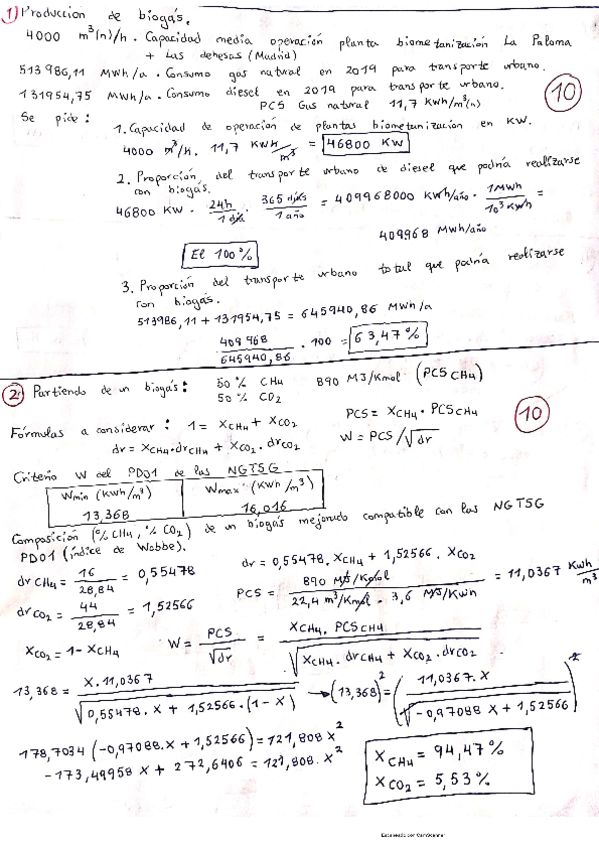 1) Produccion de biogás.
4000 m³(n)/h. Capacidad media operación planta biometanización La Paloma
+ Las dehesas (Madrid)
513986,11 MWh/a. Consumo gas natural en 2019 para transporte urbano.
131954,75 MWh/a. Consumo diesel en 2019 para transporte urbano.
PCS Gas natural 11,7 KWh/m³(n)
10
Se pide:
1. Capacidad de operación de plantas biometanización en KW.
4000 m³/h. 11,7 KWh/m³ = 46800 KW
2. Proporción del transporte urbano de diesel que podría realizarse
con biogás.
46800 KW · 24h/1día · 365 días/1 año = 409968000 KWh/año · 1MWh/10³ KWh =
409968 MWh/año
El 100%
3. Proporción del transporte urbano total que podría realizarse
con biogás.
513986,11 + 131954,75 = 645940,86 MWh/a
409968/645940,86 · 100 = 63,47%
2. Partiendo de un biogás: 50% CH4 890 MJ/Kmol (PCS CH4)
50% CO2
10
Fórmulas a considerar: 1 = XCH4 + XCO2 PCS = XCH4 · PCSCH4
dr = XCH4·drCH4 + XCO2·drCO2 W = PCS/√dr
Criterio W del PD01 de las NGTSG
Wmin (KWh/m³) Wmax (KWh/m³)
13,368 16,016
Composición (% CH4, % CO2) de un biogás mejorado compatible con las NGTSG
PD01 (índice de Wobbe).
drCH4 = 16/28,84 = 0,55478 dr = 0,55478. XCH4 + 1,52566. XCO2
drCO2 = 44/28,84 = 1,52566 PCS = 890 MJ/Kmol / 22,4 m³/Kmol · 3,6 MJ/KWh = 11,0367 KWh/m³
XCO2 = 1 - XCH4 W = PCS/√dr = XCH4. PCSCH4 / √XCH4. drCH4 + XCO2. drCO2
13,368 = X. 11,0367 / √0,55478. X + 1,52566. (1 - X) → (13,368)² = (11,0367. X / √-0,97088 X + 1,52566)²
178,7034 (-0,97088. X + 1,52566) = 121,808 X²
-173,49958 X + 272,6406 = 121,808. X²
XCH4 = 94,47%
XCO2 = 5,53%
Escaneado con CamScanner